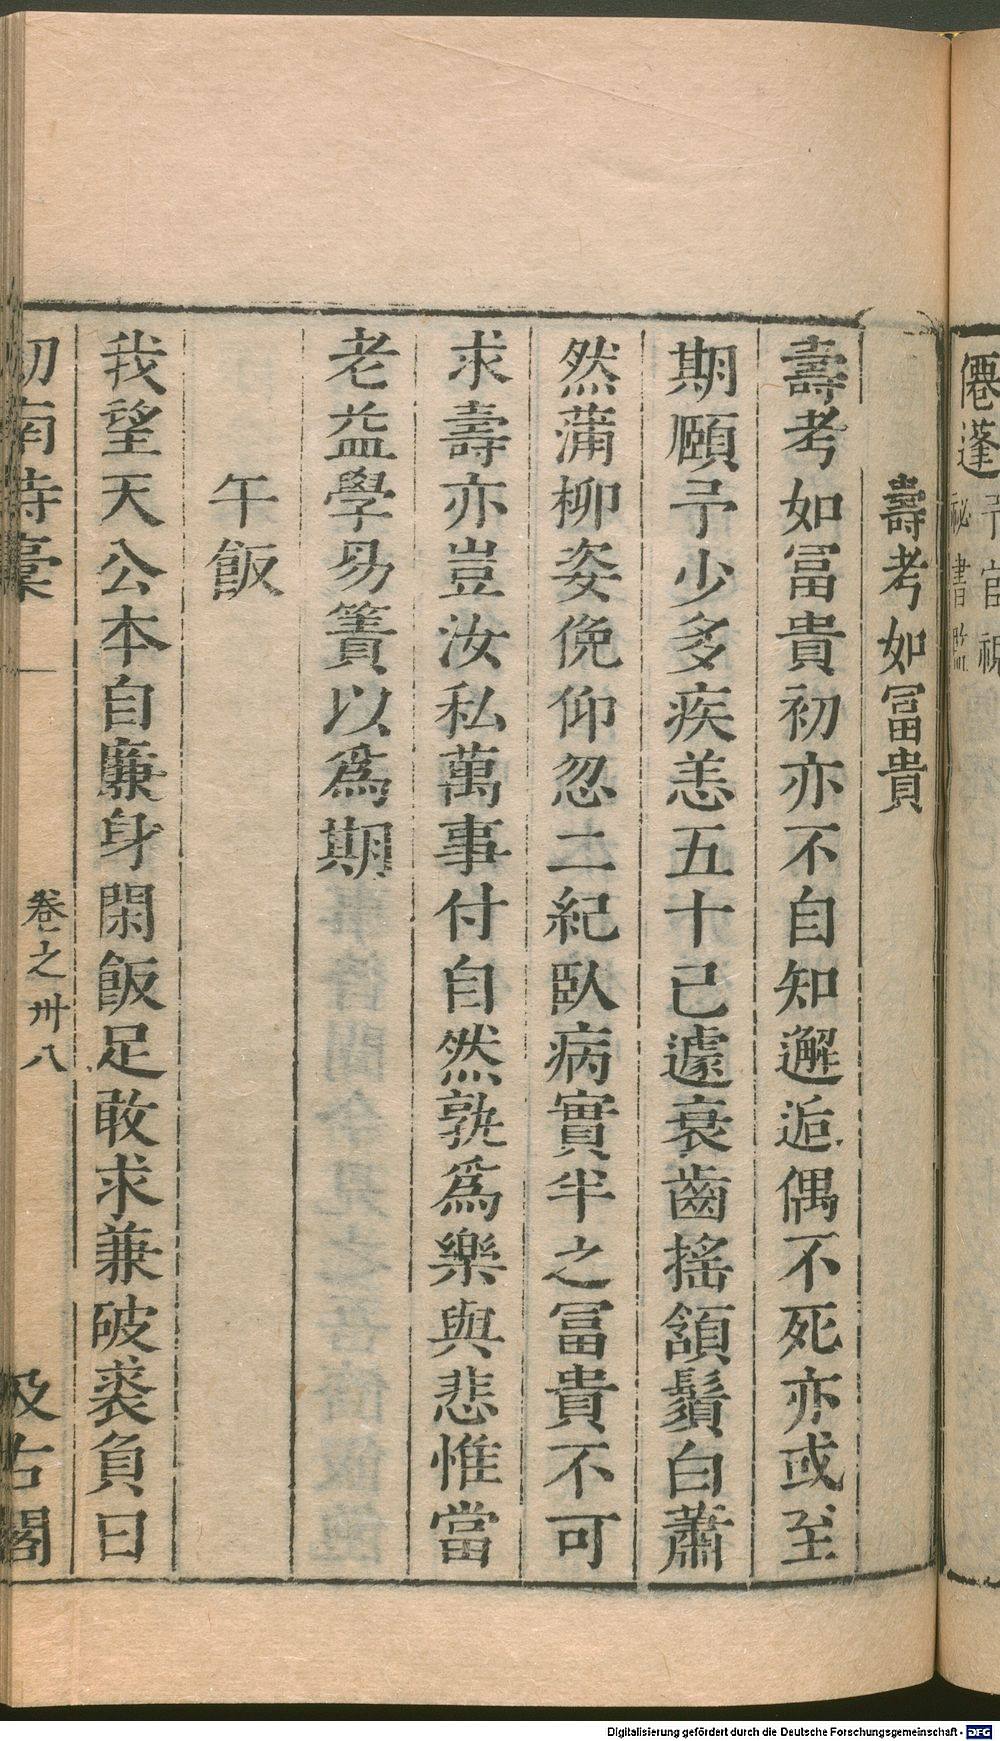 僊蓬予官祠
祕書監
壽考如冨貴
壽考如冨貴初亦不自知邂逅偶不死亦或至
期頤予少多疾恙五十已遽衰齒搖頷鬚白蕭
然蒲柳姿俛仰忽二紀臥病實半之冨貴不可
求壽亦豈汝私萬事付自然孰爲樂與悲惟當
老益學易簀以爲期
午飯
我望天公本自廉身閑飯足敢求兼破裘負日
劒南詩稾
卷之卅八
汲古閣
Digitalisierung gefördert durch die Deutsche Forschungsgemeinschaft - DFG